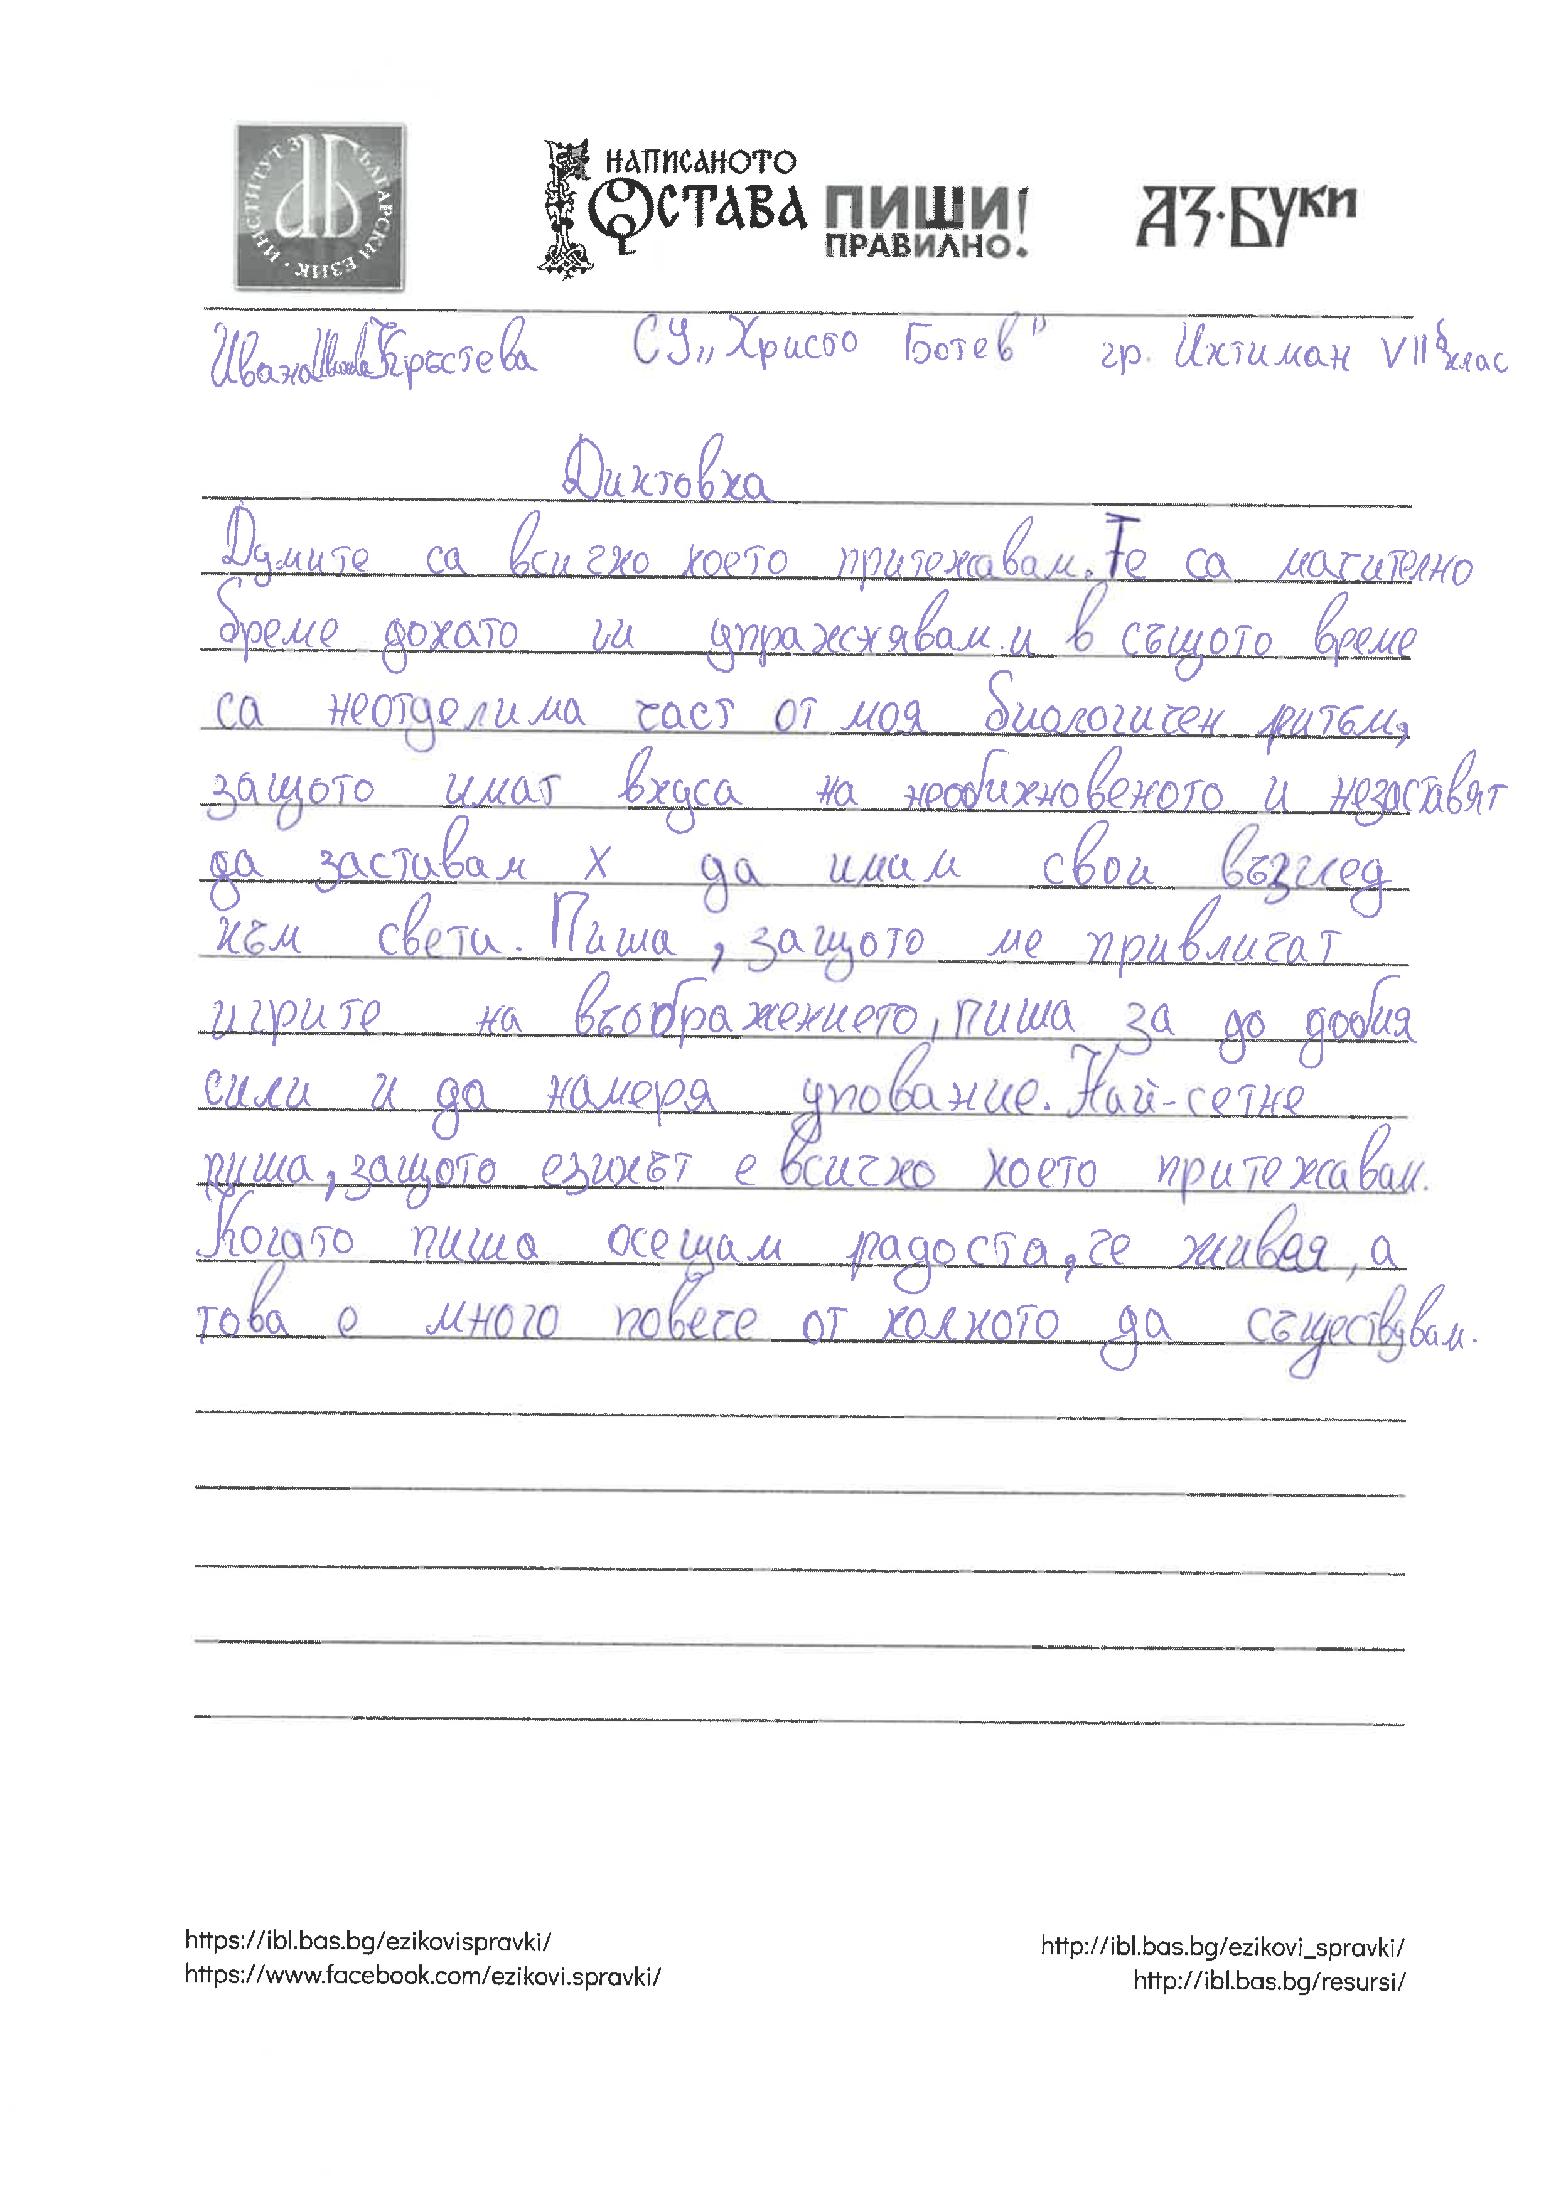 ИНСТИТУТ ЗА БЪЛГАРСКИ ЕЗИК
НАПИСАНОТО
ОСТАВА
ПИШИ!
ПРАВИЛНО.
АЗ·БУКИ
Ивана Кръстева СУ „Христо Ботев" гр. Ихтиман VIIб клас
Диктовка
Думите са всичко което притежавам. Те са мъчително
бреме докато ги упражнявам и в същото време
са неотделима част от моя биологичен ритъм,
защото имат вкуса на необикновеното и незаставят
да заставам х да имам свои възглед
към света. Пиша, защото ме привличат
игрите на въображението, пиша за до добия
сили и да намеря упование. Най-сетне
пиша, защото езикът е всичко което притежавам.
Когато пиша осещам радоста, че живея, а
това е много повече от колкото да съществувам.
https://ibl.bas.bg/ezikovispravki/ http://ibl.bas.bg/ezikovi_spravki/
https://www.facebook.com/ezikovi.spravki/ http://ibl.bas.bg/resursi/